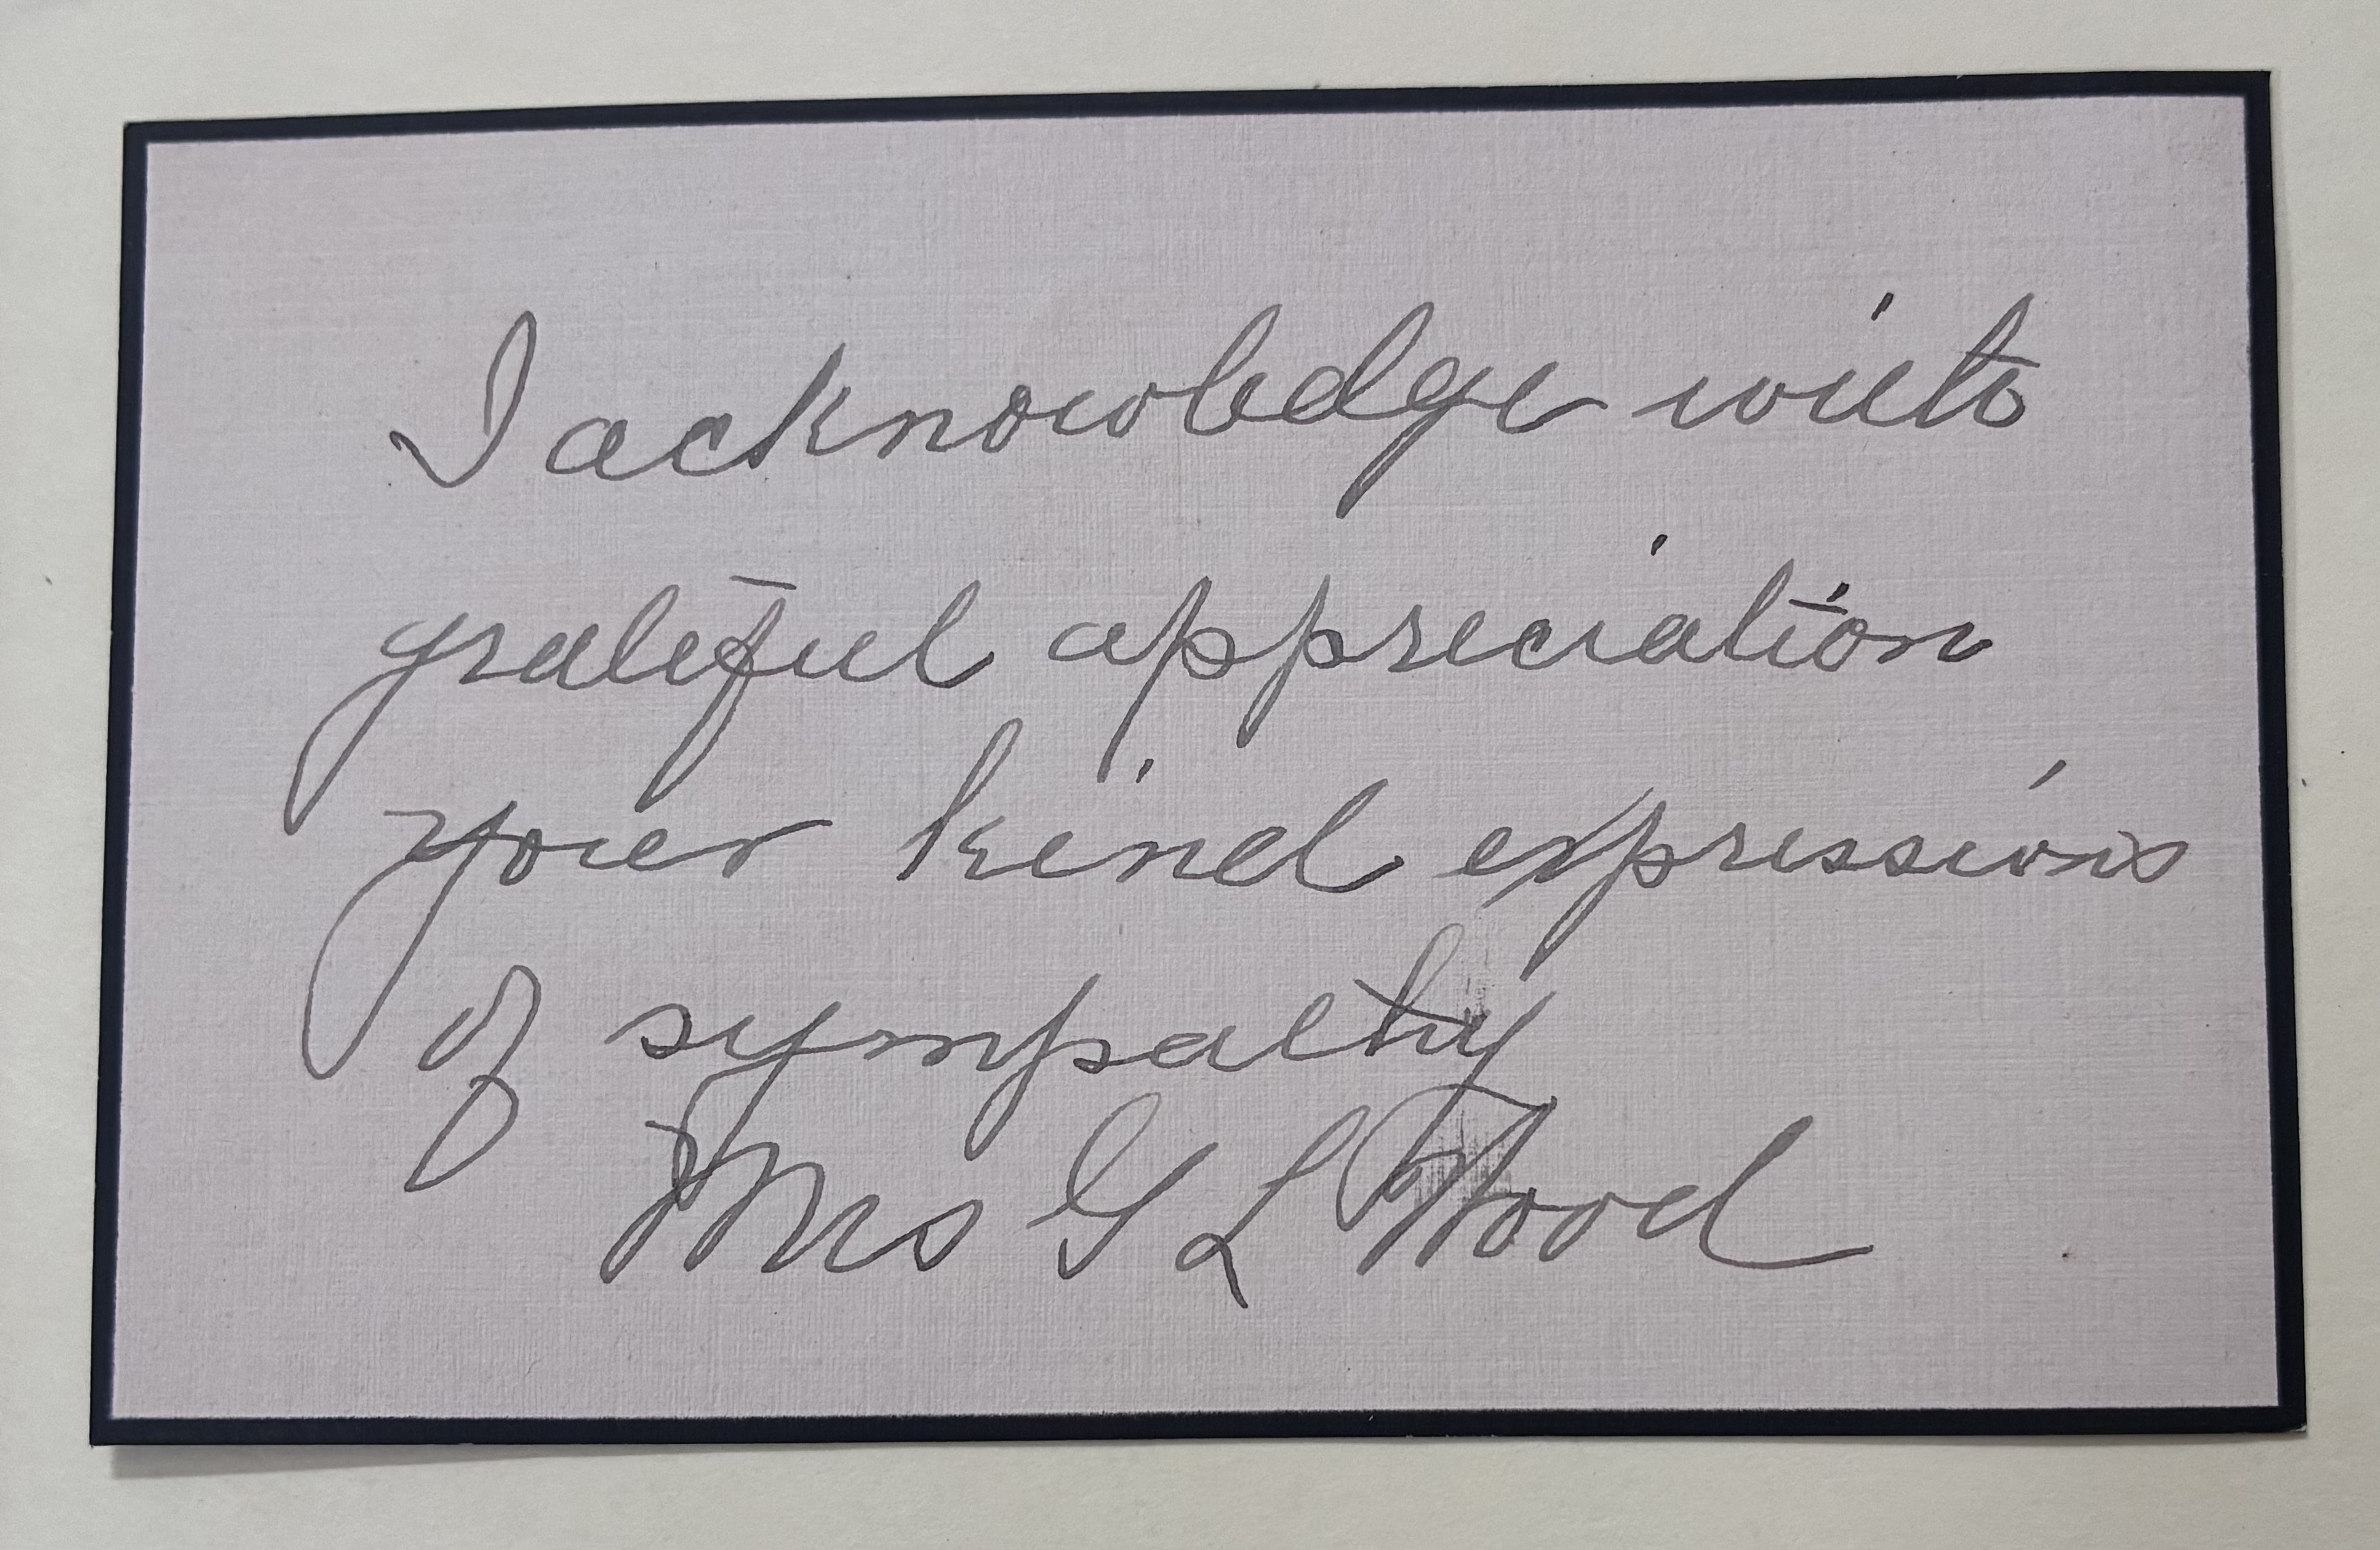 I acknowledge with
grateful appreciation
your kind expressions
of sympathy
Mrs G L Wood